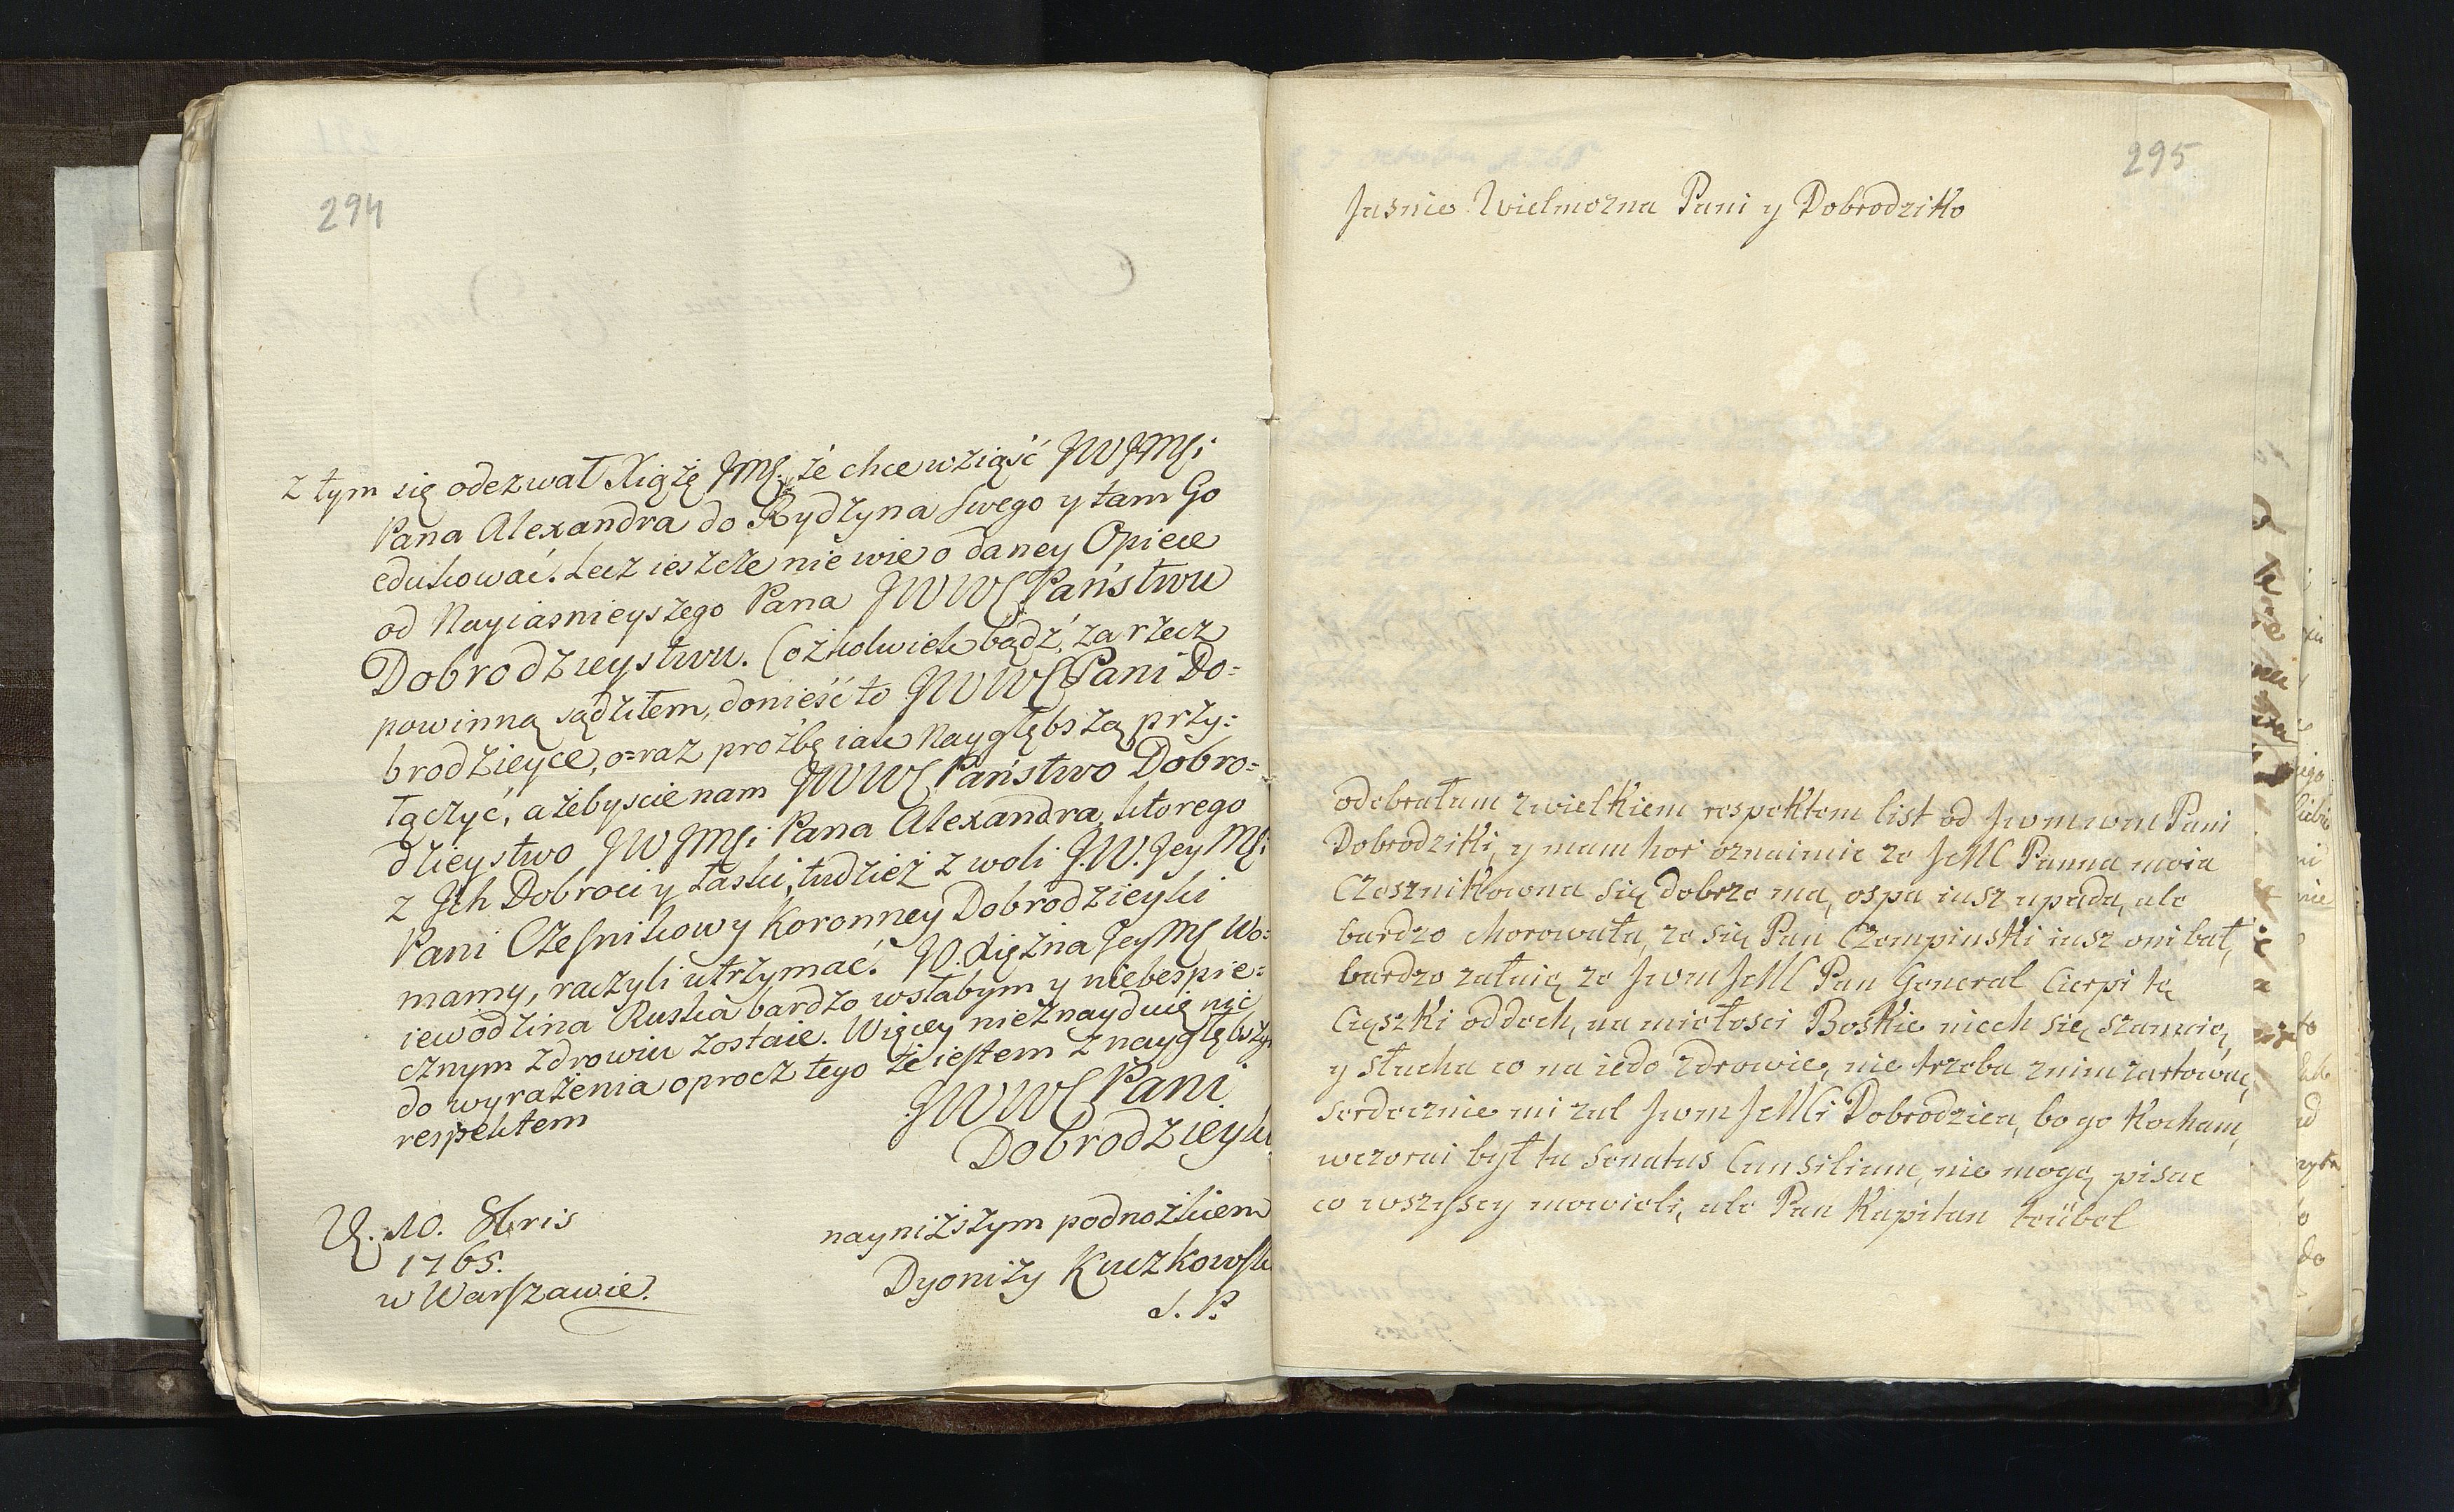 294
z tym się odezwał Xiążę JMS. że chce wziąść JWJMSi
Pana Alexandra do Rydzyna swego y tam Go
edukować. Lecz ieszcze nie wie o daney Opiece
od Nayiasnieyszego Pana JWWC Państwu
Dobrodzieystwu. Cożkolwiek bądź, za rzecz
powinną sądziłem, donieść to JWWC Pani Do=
brodzieyce, oraz prożbę iako Naygłębszą przy=
łączyć, ażebyscie nam JWWC Państwo Dobro=
dzieystwo JWJMSi Pana Alexandra, ktorego
z Jch Dobroci y łaski, tudzież z woli J.W. Jey MSi
Pani Czesnikowy Koronney Dobrodzieyki
mamy, raczyli utrzymać. W. Xiężna Jey MS Wo=
iewodzina Ruska bardzo w słabym y niebespie=
cznym zdrowiu zostaie. Więcey nieznayduię nic
do wyrażenia oprocz tego że iestem z naygłębszym
respektem
JWWC Pani
Dobrodzieyki
nayniższym podnożkiem
Dyonizy Kuczkowski
S. P.
10. 8bris
1765.
w Warszawie.
295
Jasnie Wielmozna Pani y Dobrodziko
odebrałam zwielkiem respektem list od Jwmwm Pani
Dobrodziki, y mam hor oznaimic ze JeMC Panna moia
Czesznikowna się dobrze ma, ospa iusz upada, ale
bardzo chorowała, ze się Pan Czempinski iusz oni bał,
bardzo załuię ze Jwm JeMC Pan General Cierpi tę
Cięszki oddech, na miełosci Boskie niech się szanuię,
y słucha co na iedo zdrowię, nie trzeba znim zartowac,
serdecznie mi zal Jwm JeMCi Dobrodziea, bo go Kocham,
wczorai był tu Senatus Cunsilium, nie mogę pisac
co wszyscy mowieli, ale Pan Kapitan teübel